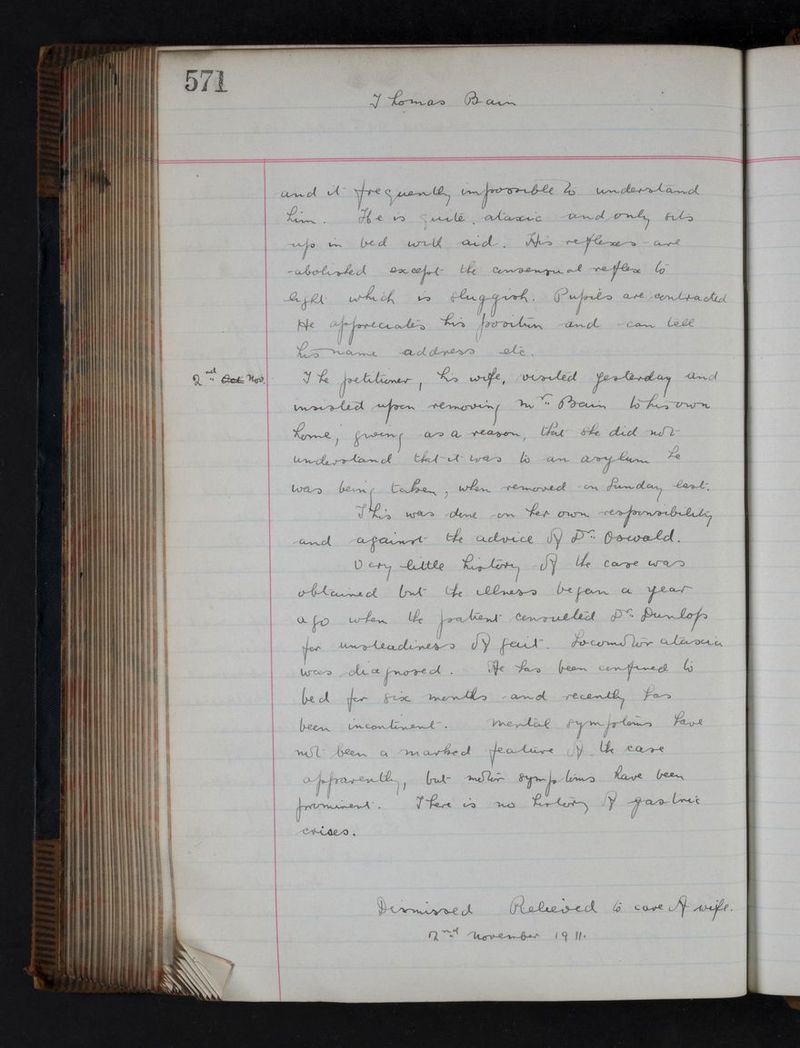 571
Thomas Bain
and it frequently impossible to understand
him. He is quite ataxic and only sits
up in bed with aid. His reflexes are
abolished except the consensual reflex to
light which is sluggish. Pupils are contracted
He appreciates his position and can tell
his name address etc.
2nd Oct Nov. The petitioner, his wife, visited yesterday and
insisted upon removing Mr. Bain to his own
home, giving as a reason, that she did not
understand that it was to an asylum he
was being taken, when removed on Sunday last.
This was done on her own responsibility
and against the advice of Dr. Oswald.
Very little history of the case was
obtained but the illness began a year
ago when the patient consulted Dr. Dunlop
for unsteadiness of gait. Locomotor ataxia
was diagnosed. He has been confined to
bed for six months and recently has
been incontinent. Mental symptoms have
not been a marked feature of the case
apparently, but motor symptoms have been
prominent. There is no history of gastric
crises.
Dismissed Relieved to care of wife.
2nd November 1911.